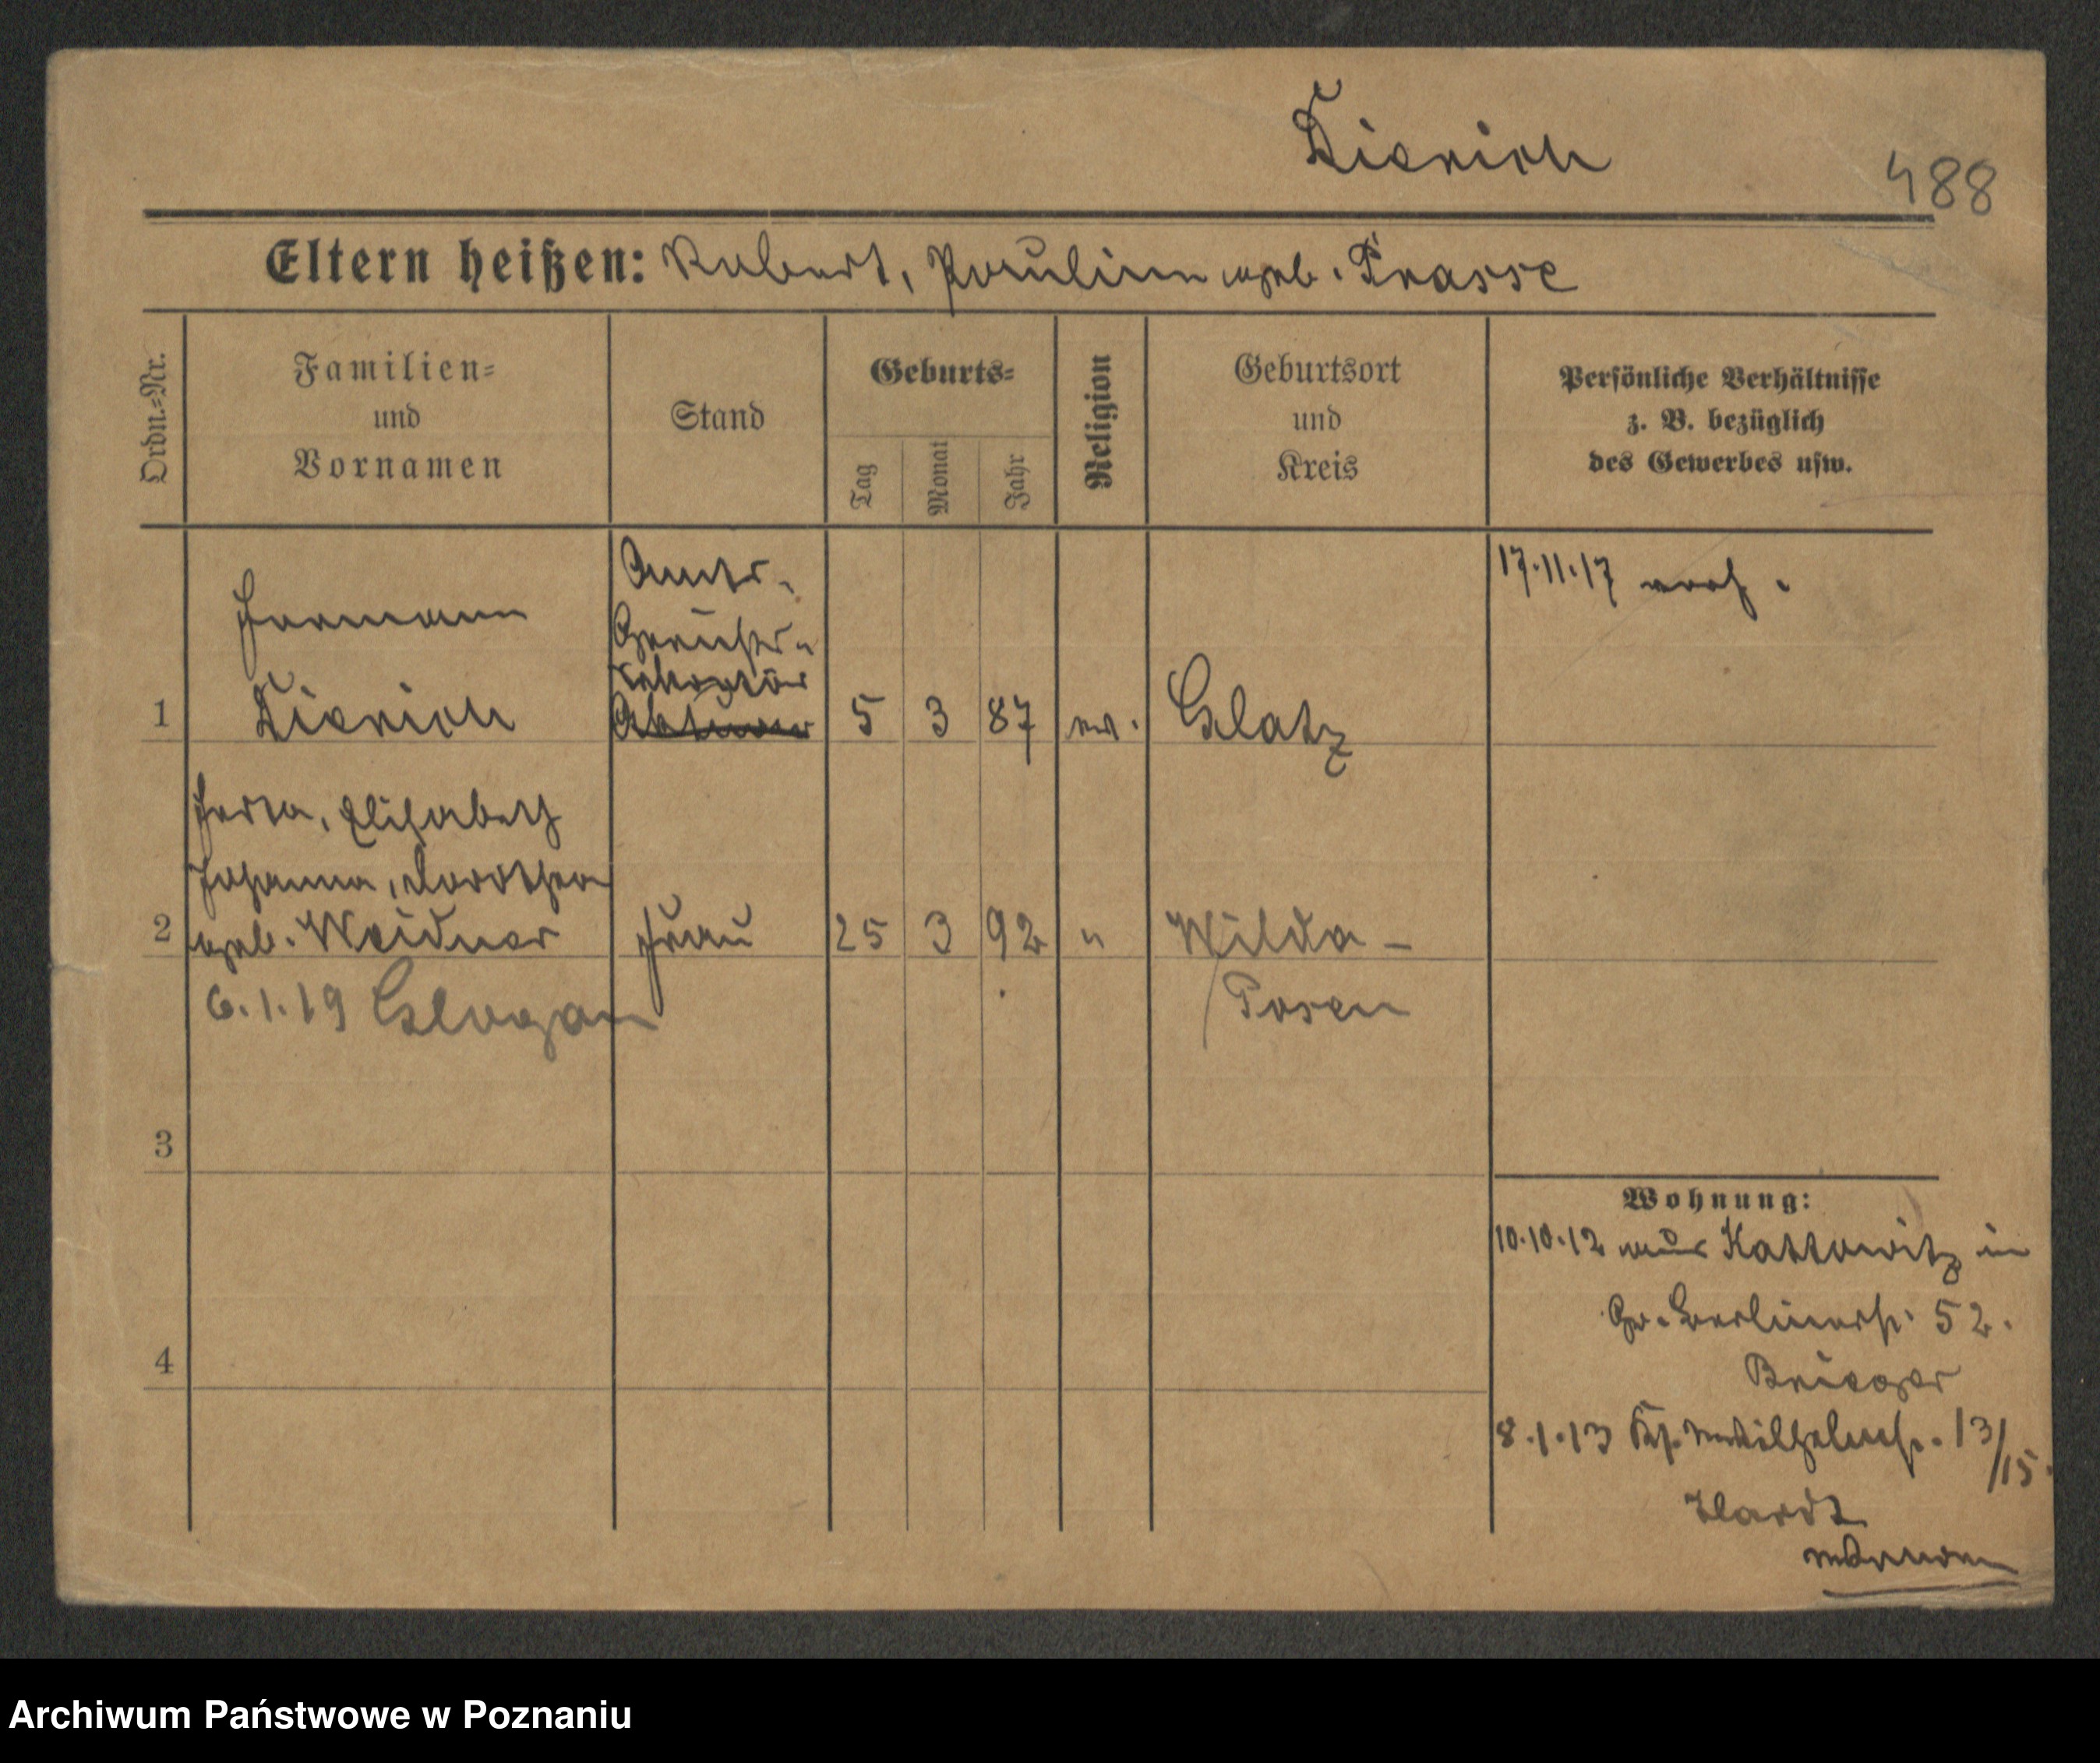 Dierich
488
Eltern heißen: Robert, Pauline geb. Prasse
Ordn.=Nr.
Familien=
und
Vornamen
Stand
Geburts=
Tag
Monat
Jahr
Religion
Geburtsort
und
Kreis
Persönliche Verhältnisse
z. B. bezüglich
des Gewerbes usw.
Hermann
Dierich
Amts-
Gerichts-
Sekretär
Aktuar
1
5 3 87 ev. Glatz
17.11.17 verh.
Herta, Elisabeth
Johanna, Dorothea
2 geb. Weidner Frau 25 3 92 " Wilda-
Posen
6.1.19 Glogau
3
4
Wohnung:
10.10.12 aus Kattowitz in
Gr. Berlinerstr. 52.
Brieger
8.1.13 Wilhelmstr. 13/15.
Hardt
Archiwum Państwowe w Poznaniu